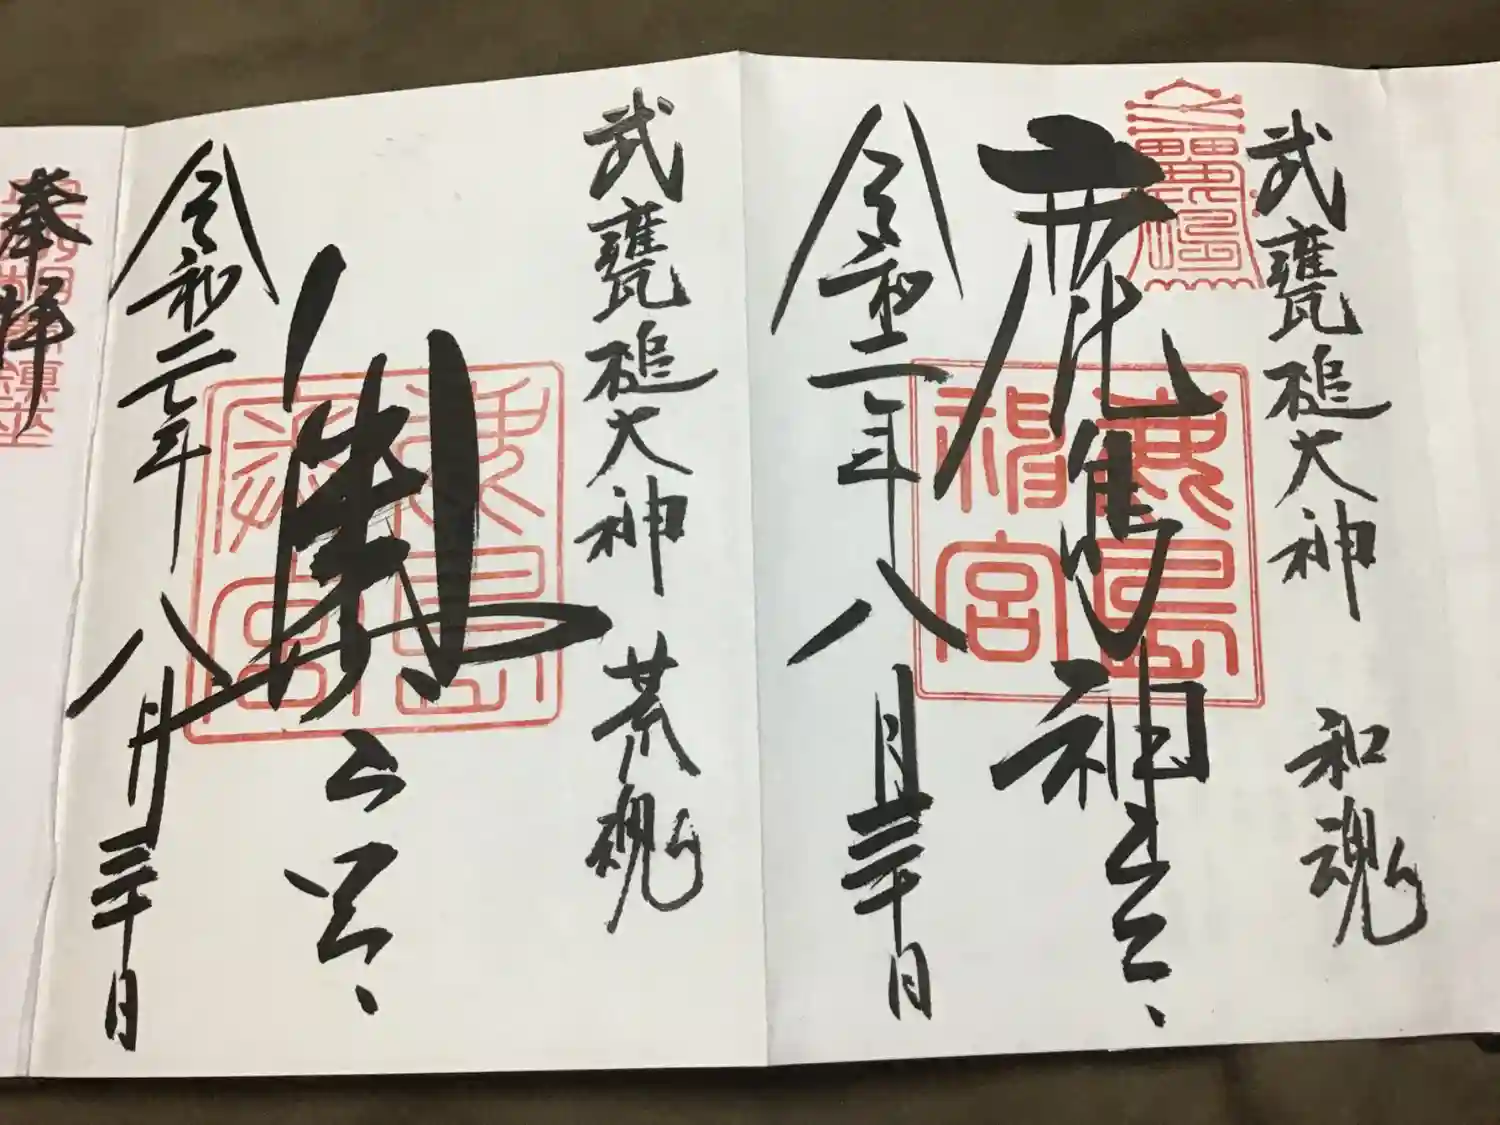 武甕槌大神 和魂
鹿島
鹿島神宮
鹿島
神宮
令和二年八月三十日
武甕槌大神 荒魂
奥宮
鹿島
奥宮
令和二年八月三十日
奉拝